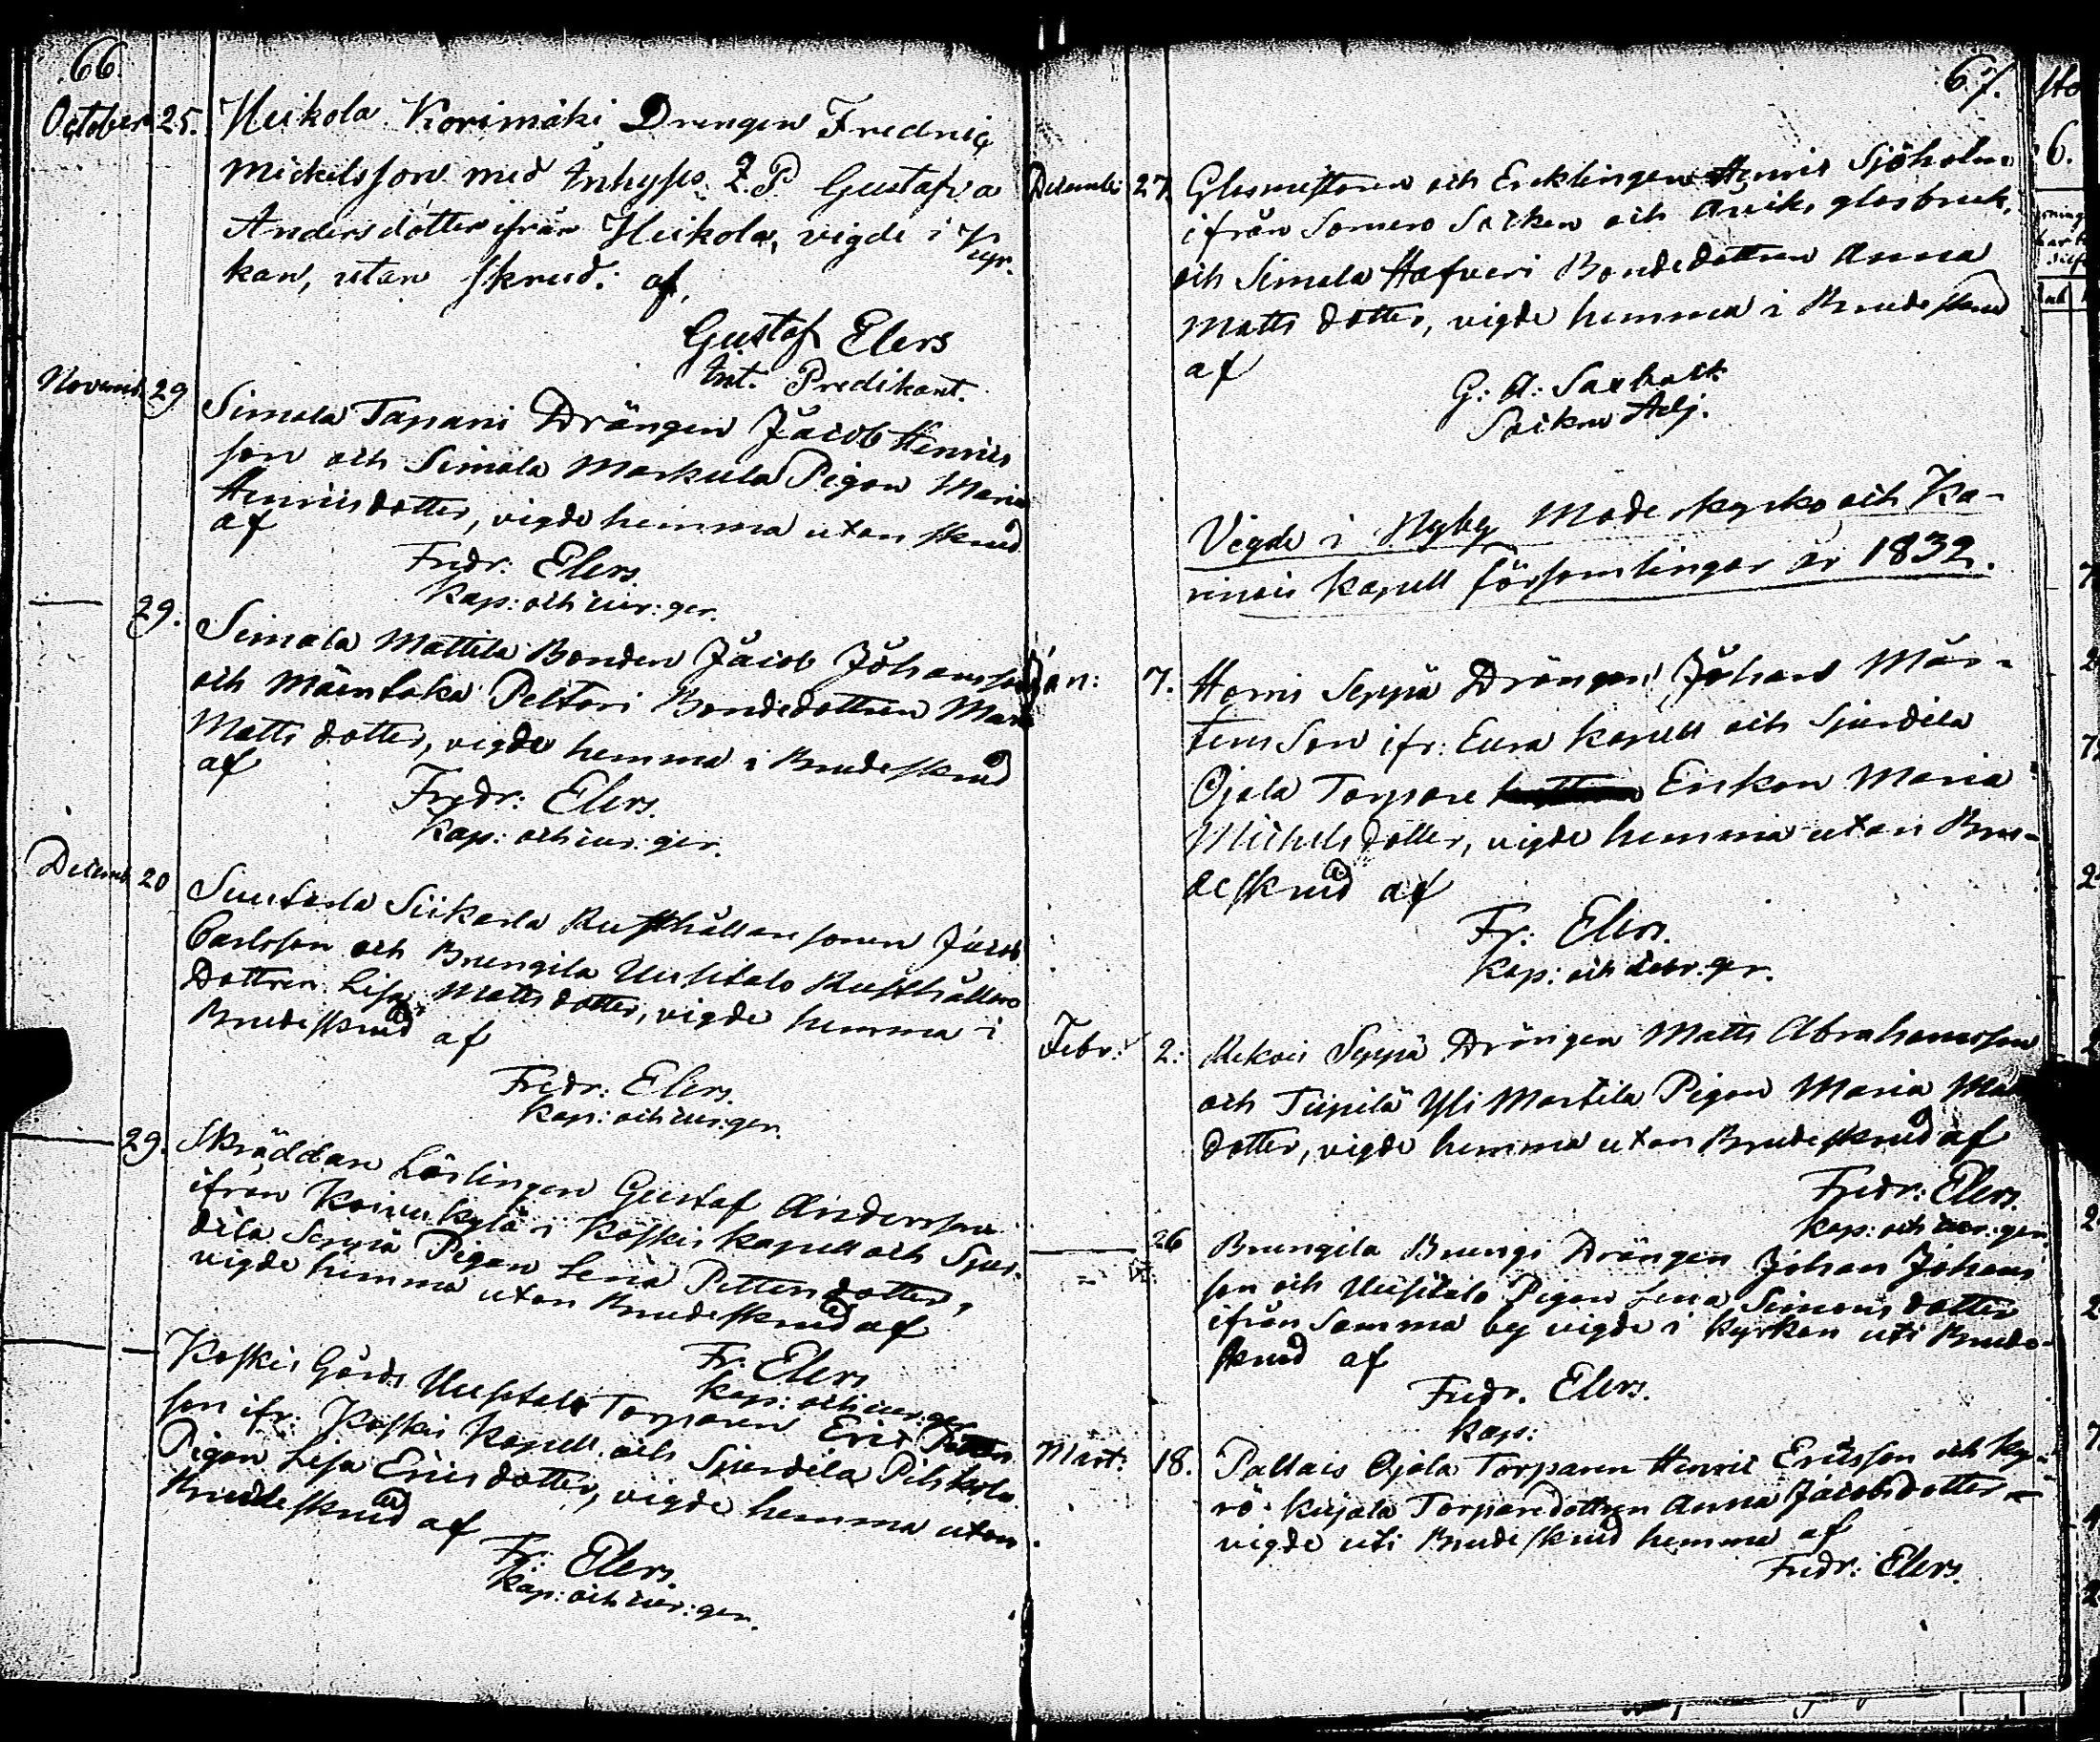 66.
October 25. Heikola Korimäki Drengen Fredric
Mickelsson med Inhyses E. P. Gustafva
Andersdotter ifrån Heikola, vigde i Kyr-
kan, utan skrud. af,
Gustaf Elers
Int. Predikant.
Novemb. 29 Simala Tapani Drängen Jacob Henrics
son och Simala Markula Pigan Maria
Henricsdotter, vigde hemma utan skrud
af
Fredr: Elers.
Kap: och cur: ger.
29. Simala Mattila Bonden Jacob Johansson
och Mäentaka Peltari Bondedottren Maria
Matts dotter, vigde hemma i Brudeskrud
af
Fredr: Elers.
Kap: och cur: ger.
Decemb. 20 Suutarla Siikarla Rusthållare sonen Jacob
Carlsson och Brungila Uusitalo Rusthållare
Dottren Lisa Matts dotter, vigde hemma i
Brudeskrud af
Fredr: Elers.
Kap: och cur: ger.
29. Skräddare Lärlingen Gustaf Andersson
ifrån Koivukylä i Koskis Kapell och Sjur-
dila Seppä Pigan Lena Pettersdotter,
vigde hemma utan Brudeskrud af
Fr: Elers
Kap: och cur: ger
Koskis Gårds Uusitalo Torparen Eric
son ifr: Koskis Kapell och Sjurdila
Pigan Lisa Ericsdotter, vigde hemma utan
Brudeskrud af
Fr: Elers.
Kap: och cur: ger.
67.
Decemb: 27. Glasmästaren och Encklingen Henric Sjöholm
ifrån Somero Socken och Åviks glasbruk,
och Simala Hafveri Bondedottren Anna
Matts dotter, vigde hemma i Brudeskrud
af
G: A:
Sockne Adj.
Vigde i Nyby Moderkyrko och Ka-
rinais Kapell församlingar år 1832.
Jan: 7. Harris Seppä Drängen Johan Mår-
tens Son ifr: Eura Kapell och Sjurdila
Ojala Torpare Enkan Maria
Michelsdotter, vigde hemma utan Bru-
deskrud af
Fr: Elers.
Kap: och cur: ger.
Febr: 2: Rekois Seppä Drängen Matts Abrahamsson
och Tiipilä Yli Martila Pigan Maria
dotter, vigde hemma utan Brudeskrud af
Fredr: Elers.
Kap: och cur: ger.
26 Brungila Brungi Drängen Johan Johans
son och Uusitalo Pigan Lena Simonsdotter
ifrån samma by vigde i Kyrkan uti Brude-
skrud af
Fredr. Elers.
Kap:
Mart: 18. Pallais Ojala Torparen Henric Ericsson och Ky-
rö Kujala Torparedottren Anna Jacobsdotter
vigde uti Brudeskrud hemma af
Fredr: Elers.
6.